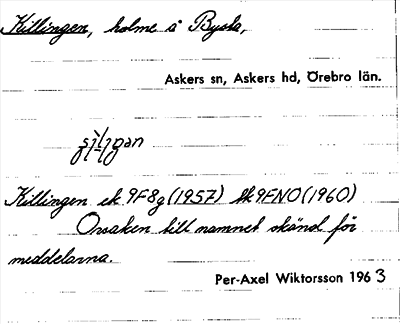 Killingen, holme å Bysta,
Askers sn, Askers hd, Örebro län.
Killingen ek 9F8g (1957) tk 9FNO (1960)
Orsaken till namnet okänd för
meddelarna.
Per-Axel Wiktorsson 1963